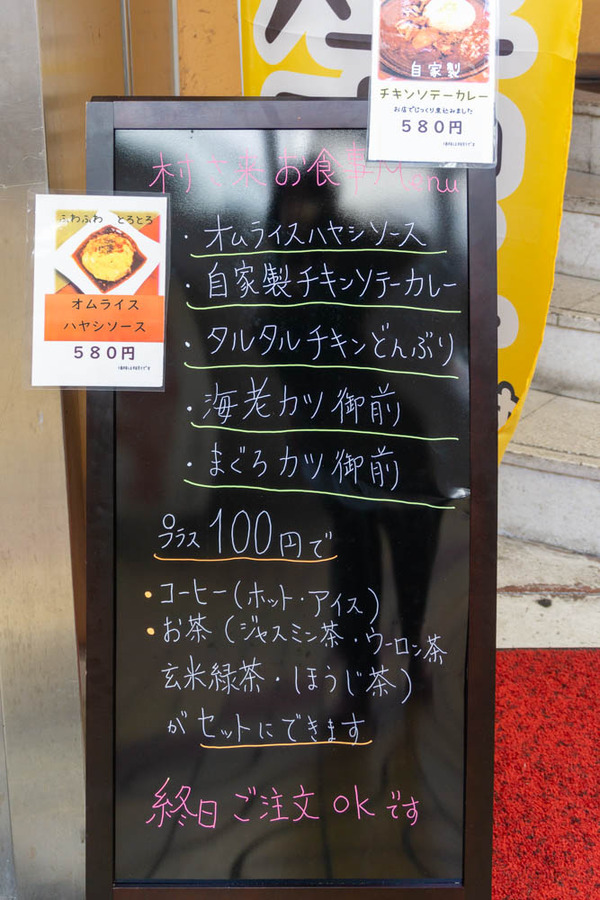 自家製
チキンソテーカレー
お店でじっくり煮込みました
580円
村さ来お食事Menu
・オムライスハヤシソース
・自家製チキンソテーカレー
・タルタルチキンどんぶり
・海老カツ御前
・まぐろカツ御前
プラス100円で
・コーヒー(ホット・アイス)
・お茶(ジャスミン茶・ウーロン茶
玄米緑茶・ほうじ茶)
がセットにできます
終日ご注文okです
ふわふわ とろとろ
オムライス
ハヤシソース
580円